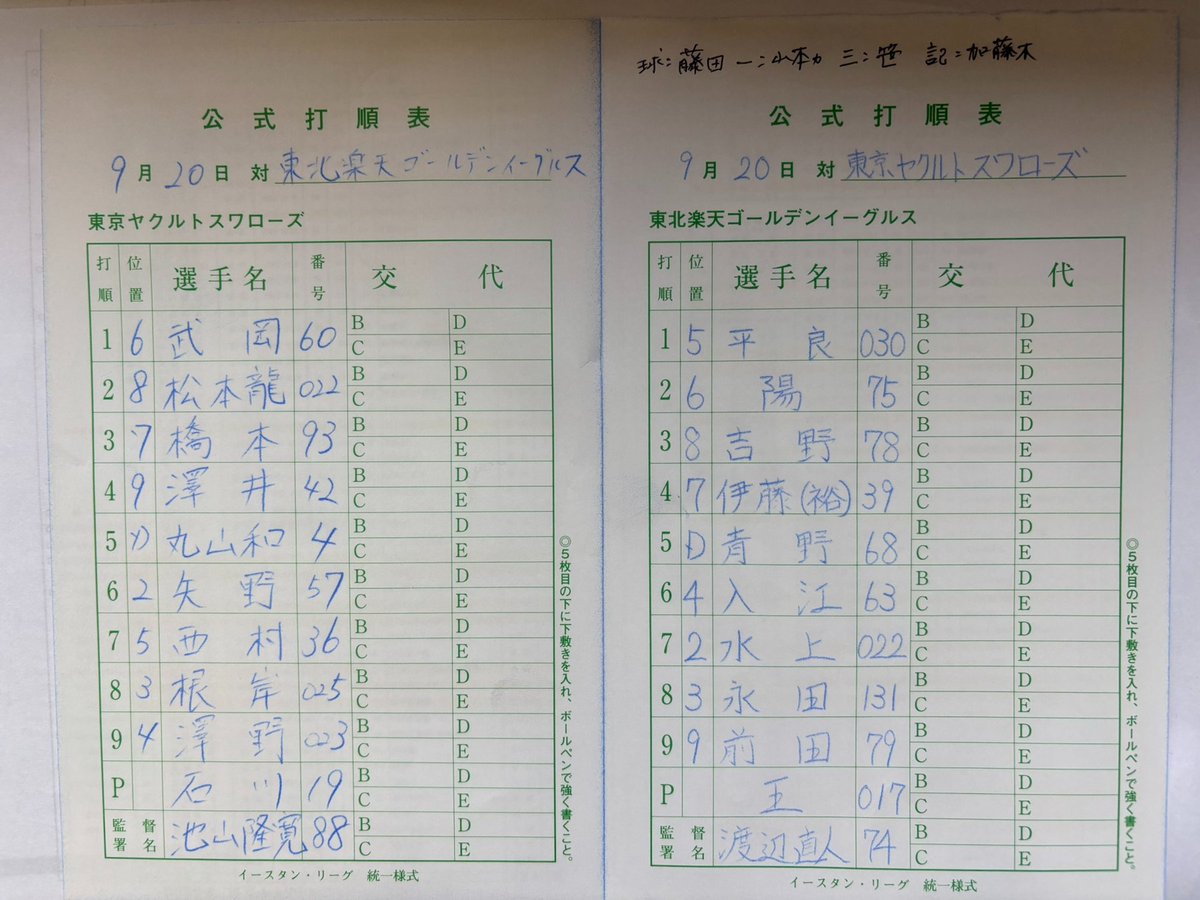 公式打順表
9月20日 対 東北楽天ゴールデンイーグルス
東京ヤクルトスワローズ
打順 位置 選手名 番号 交代
1 6 武岡 60 B D C E
2 8 松本龍 022 B D C E
3 7 橋本 93 B D C E
4 9 澤井 42 B D C E
5 D 丸山和 4 B D C E
6 2 矢野 57 B D C E
7 5 西村 36 B D C E
8 3 根岸 025 B D C E
9 4 澤野 023 B D C E
P 石川 19 B D C E
監督署名 池山隆寛 88 B D C E
◎5枚目の下に下敷きを入れ、ボールペンで強く書くこと。
イースタン・リーグ 統一様式
球:藤田 一:山本力 三:笹 記:加藤木
公式打順表
9月20日 対 東京ヤクルトスワローズ
東北楽天ゴールデンイーグルス
打順 位置 選手名 番号 交代
1 5 平良 030 B D C E
2 6 陽 75 B D C E
3 8 吉野 78 B D C E
4 7 伊藤(裕) 39 B D C E
5 D 青野 68 B D C E
6 4 入江 63 B D C E
7 2 水上 022 B D C E
8 3 永田 131 B D C E
9 9 前田 79 B D C E
P 王 017 B D C E
監督署名 渡辺直人 74 B D C E
◎5枚目の下に下敷きを入れ、ボールペンで強く書くこと。
イースタン・リーグ 統一様式